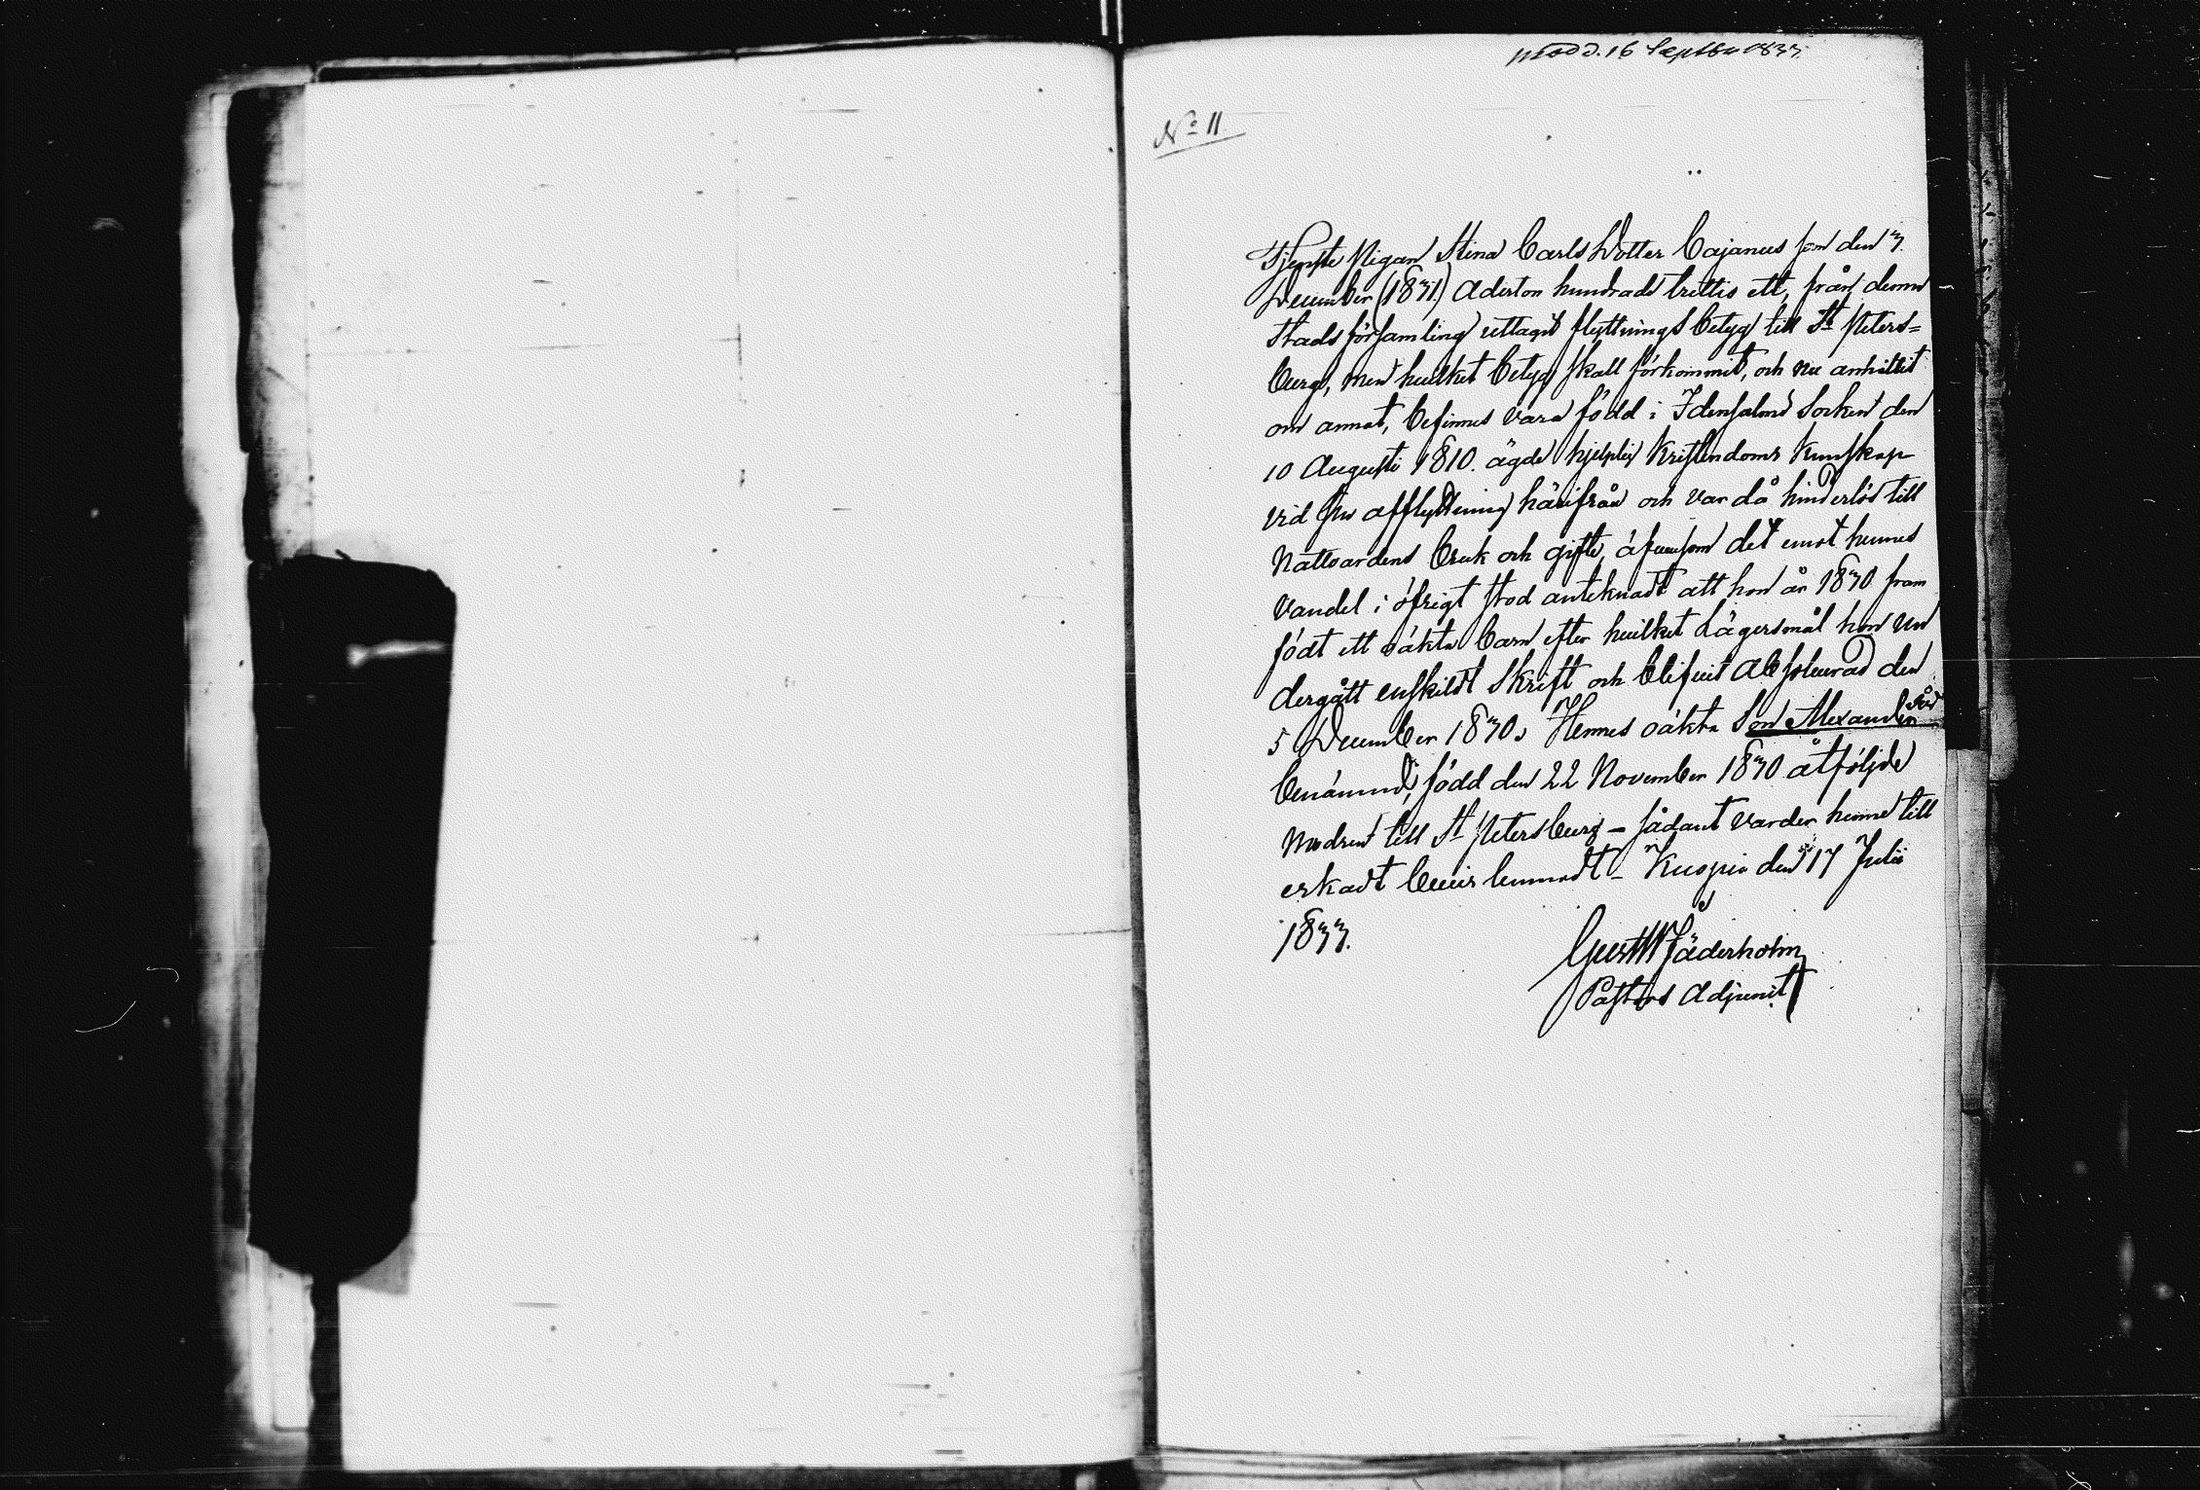 prod d. 16 Septbr 1833.
No 11
Tjenste Pigan Stina Carls Dotter Cajanus som den 3.
December (1831.) Aderton hundrade trettio ett, från denna
Stads församling uttagit flyttnings betyg till St Peters=
burg, men hvilket betyg skall förkommit, och nu anhållit
om annat, befinnes vara född i Idensalmi Socken den
10 Augusti 1810. ägde hjelplig Kristendoms kunskap
vid sin afflyttning härifrån och var då hinderlös till
Nattvardens bruk och gifte, äfvensom det emot hennes
vandel i öfrigt stod anteknadt att hon år 1830 fram
födt ett oäkta barn efter hvilket Lägersmål hon un
dergått enskildt Skrift och blifvit absolverad den
5 December 1830. Hennes oäkta Son Alexander
benämnd, född den 22 November 1830 åtföljde
modren till St Petersburg – sådant varder henne till
erkadt bevis lemnadt – Kuopio den 17 Julii
1833.
Gust W Säderholm
Pastors Adjunct